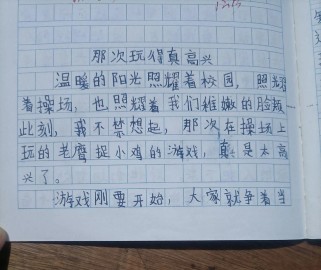 那次玩得真高兴
温暖的阳光照耀着校园，照耀
着操场，也照耀着我们稚嫩的脸颊
此刻，我不禁想起，那次在操场上
玩的老鹰捉小鸡的游戏，真是太高
兴了。
游戏刚要开始，大家就争着当